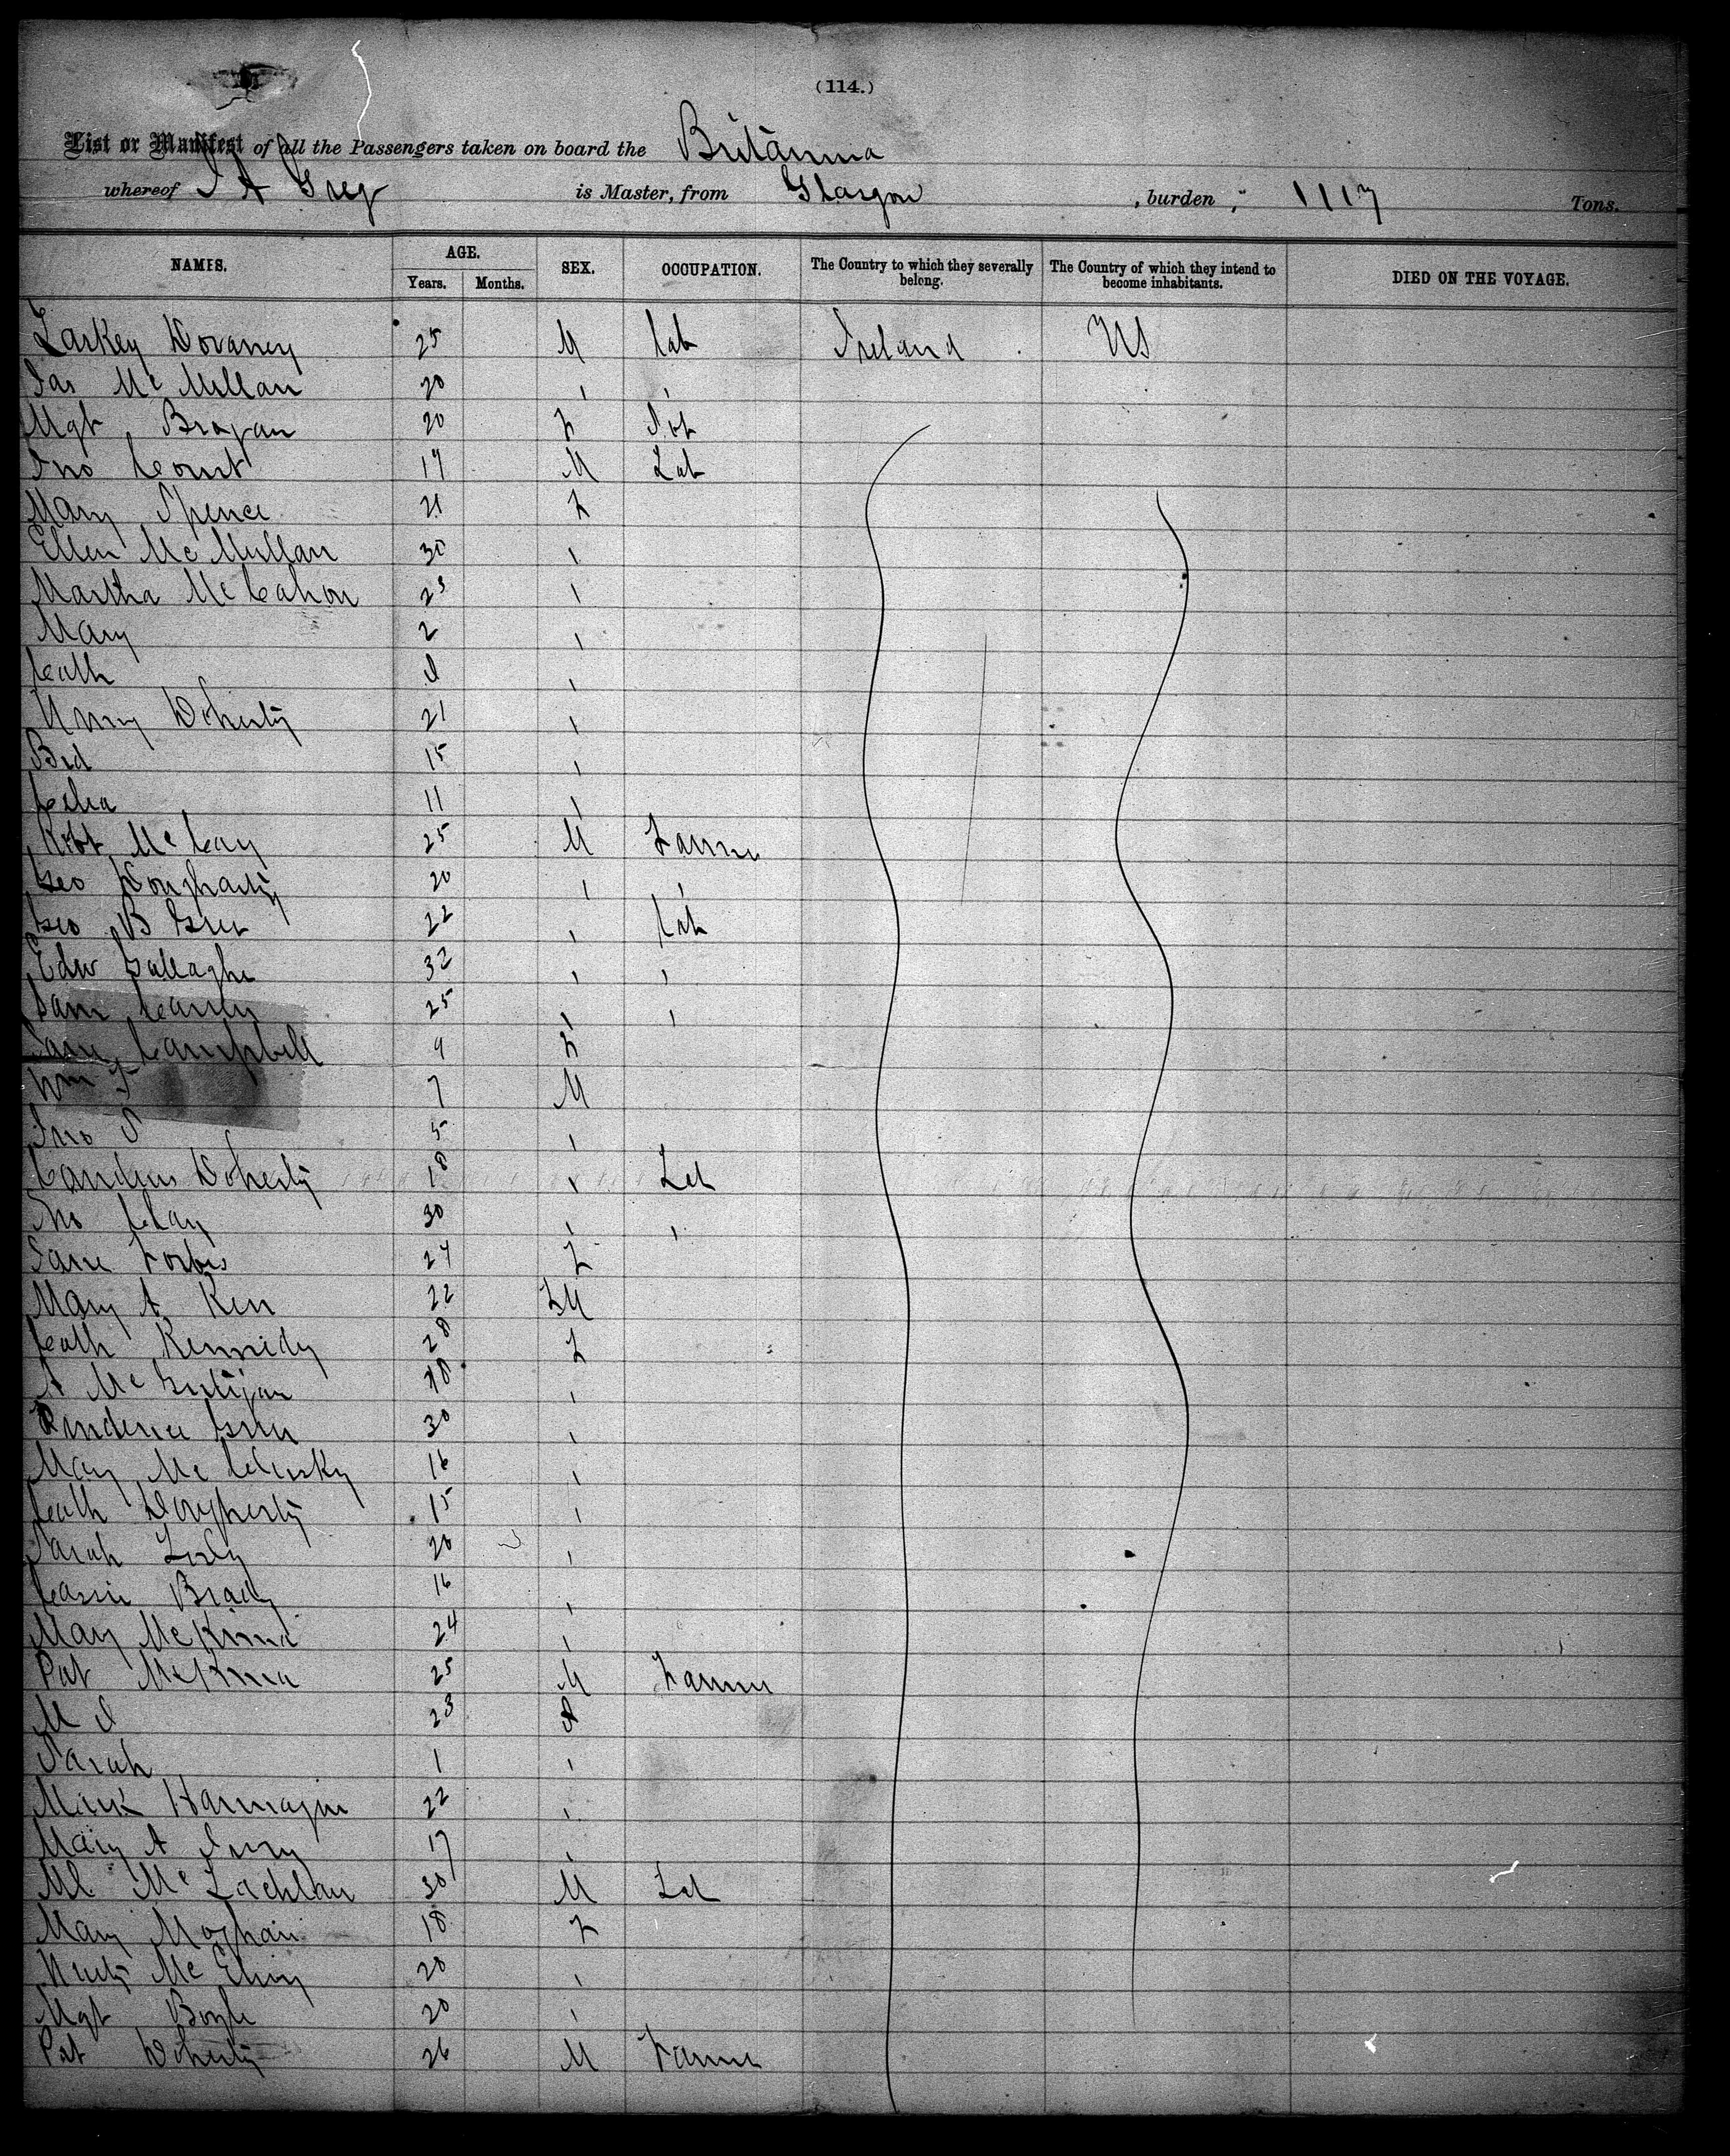 (114.)
List or Manifest of all the Passengers taken on board the Britannia
whereof J A Greg is Master, from Glasgow , burden , 1117 Tons.
NAMES. AGE. SEX. OCCUPATION. The Country to which they severally belong. The Country of which they intend to become inhabitants. DIED ON THE VOYAGE.
Years. Months.
Larkey Dovaney 25 M Lab Ireland US
Jas McMillan 20 "
Mgt Brogan 20 F
Jno Court 19 M Lab
Mary Spence 21 F
Ellen McMullan 30 "
Martha McCahon 23 "
Mary 2 "
Cath "
Doherty 21 "
Brd 15 "
Celia 11 "
Robt McCay 25 M Farmer
Geo Dougharty 20 " "
Geo B Greer 22 " Lab
Edw Gallagher 32 " "
25 " "
Jane Campbell 9 F
Wm J 7 M
Jno 5 "
Doherty 18 " Lab
Jno Clay 30 " "
Jane Forbes 24 F
Mary A Kerr 22
Cath Kennedy 28 F
A McGettigan 18 "
Greer 30 "
Mary McCluskey 16 "
Cath Dougherty 15 "
Sarah 20 "
Cassie Brady 16 "
Mary McKinna 24 "
Pat McKinna 25 M Farmer
M 23
Sarah 1 "
22 "
Mary A 17 "
Ml McLachlan 30 M Lab
Mary 18 F
20 "
Mgt Boyle 20 "
Pat Doherty 26 M Farmer